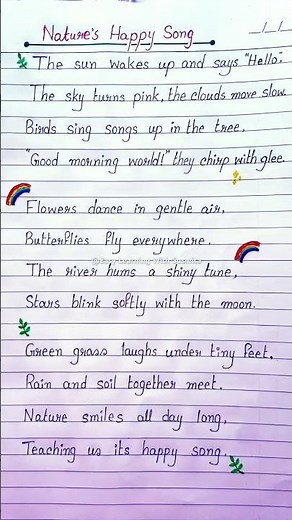 Nature's Happy Song
__/__/__
The sun wakes up and says "Hello".
The sky turns pink, the clouds move slow.
Birds sing songs up in the tree,
"Good morning world!" they chirp with glee.
Flowers dance in gentle air,
Butterflies fly everywhere.
The river hums a shiny tune,
Stars blink softly with the moon.
Green grass laughs under tiny feet,
Rain and soil together meet.
Nature smiles all day long,
Teaching us its happy song.